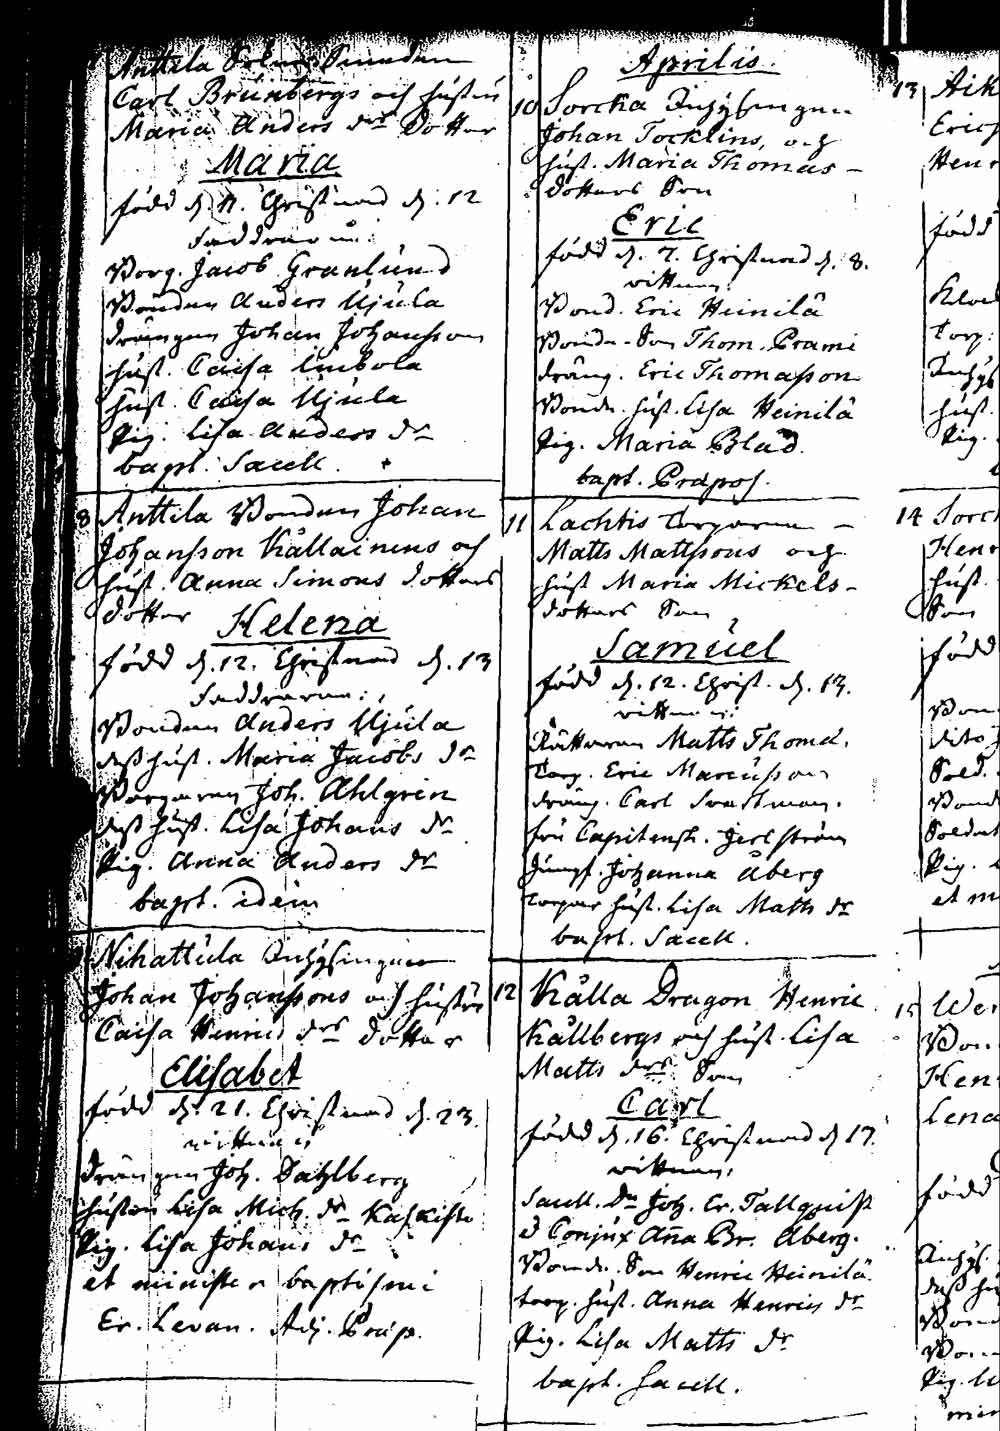 Anttila
Carl Brunbergs och hustrus
Maria Anders drs Dotter
Maria
född d. 11. Christnad d. 12
Faddrarne:
Borg. Jacob Granlund
Bonden Anders Ujula
drängen Johan Johansson
hust. Caisa
hust. Caisa Ujula
Pig. Lisa Anders dr
bapt. Sacell.
8 Anttila Bonden Johan
Johansson Källainens och
hust. Anna Simons dotters
dotter Helena
född d. 12. Christnad d. 13
Faddrarne:
Bonden Anders Ujula
dess hust. Maria Jacobs dr
Borgaren Joh. Ahlgrén
dess hust. Lisa Johans dr
Pig. Anna Anders dr
bapt. idem
Nihattula Inhysingen
Johan Johanssons och hustrus
Caisa Henrics drs dotter
Elisabet
född d. 21. Christnad d. 23.
vittnen
drängen Joh. Dahlberg
hustru Lisa Mich. dr Kaskisto
Pig. Lisa Johans dr
et minister baptismi
Er. Levan. Adj. Præp.
Aprilis.
10 Sorcka Inhysingen
Johan Tocklins, och
hust. Maria Thomas-
dotters Son
Eric
född d. 7. Christnad d. 8.
vittnen
Bond. Eric Heinilä
Bonde-Son Thom. Prami
dräng. Eric Thomasson
Bonde hust. Lisa Heinilä
Pig. Maria Blad.
bapt. Præpos.
11 Lachtis Torparen -
Matts Mattssons och
hust Maria Mickels-
dotters Son
Samuel
född d. 12. Christ. d. 13.
vittnen:
Rättaren Matts Thomæ.
Torp. Eric Marcusson
dräng. Carl Svartman.
fru Capitensk. Jerlström
Jungf. Johanna Åberg
Torpar hust. Lisa Matts dr
bapt. Sacell.
12 Källa Dragon Henric
Källbergs och hust. Lisa
Matts drs Son
Carl
född d. 16. Christnad d 17.
vittnen:
Sacell. Dn Joh. Er. Tallqvist
& Conjux Aña Br. Åberg.
Bonde Son Henric Heinilä
torp. hust. Anna Henrics dr
Pig. Lisa Matts dr
bapt. Sacell.
13 Aik
Erics
Henr
född
Torp.
Inhys
hust.
Pig.
14 Sorck
Henr
hust.
Son
född
Bon
dito
Sold.
Bond
Soldat
Pig.
et m
15 Wer
Bon
Hen
Lena
född
Inhys.
dess hu
Bond
Bon
Pig. Li
min